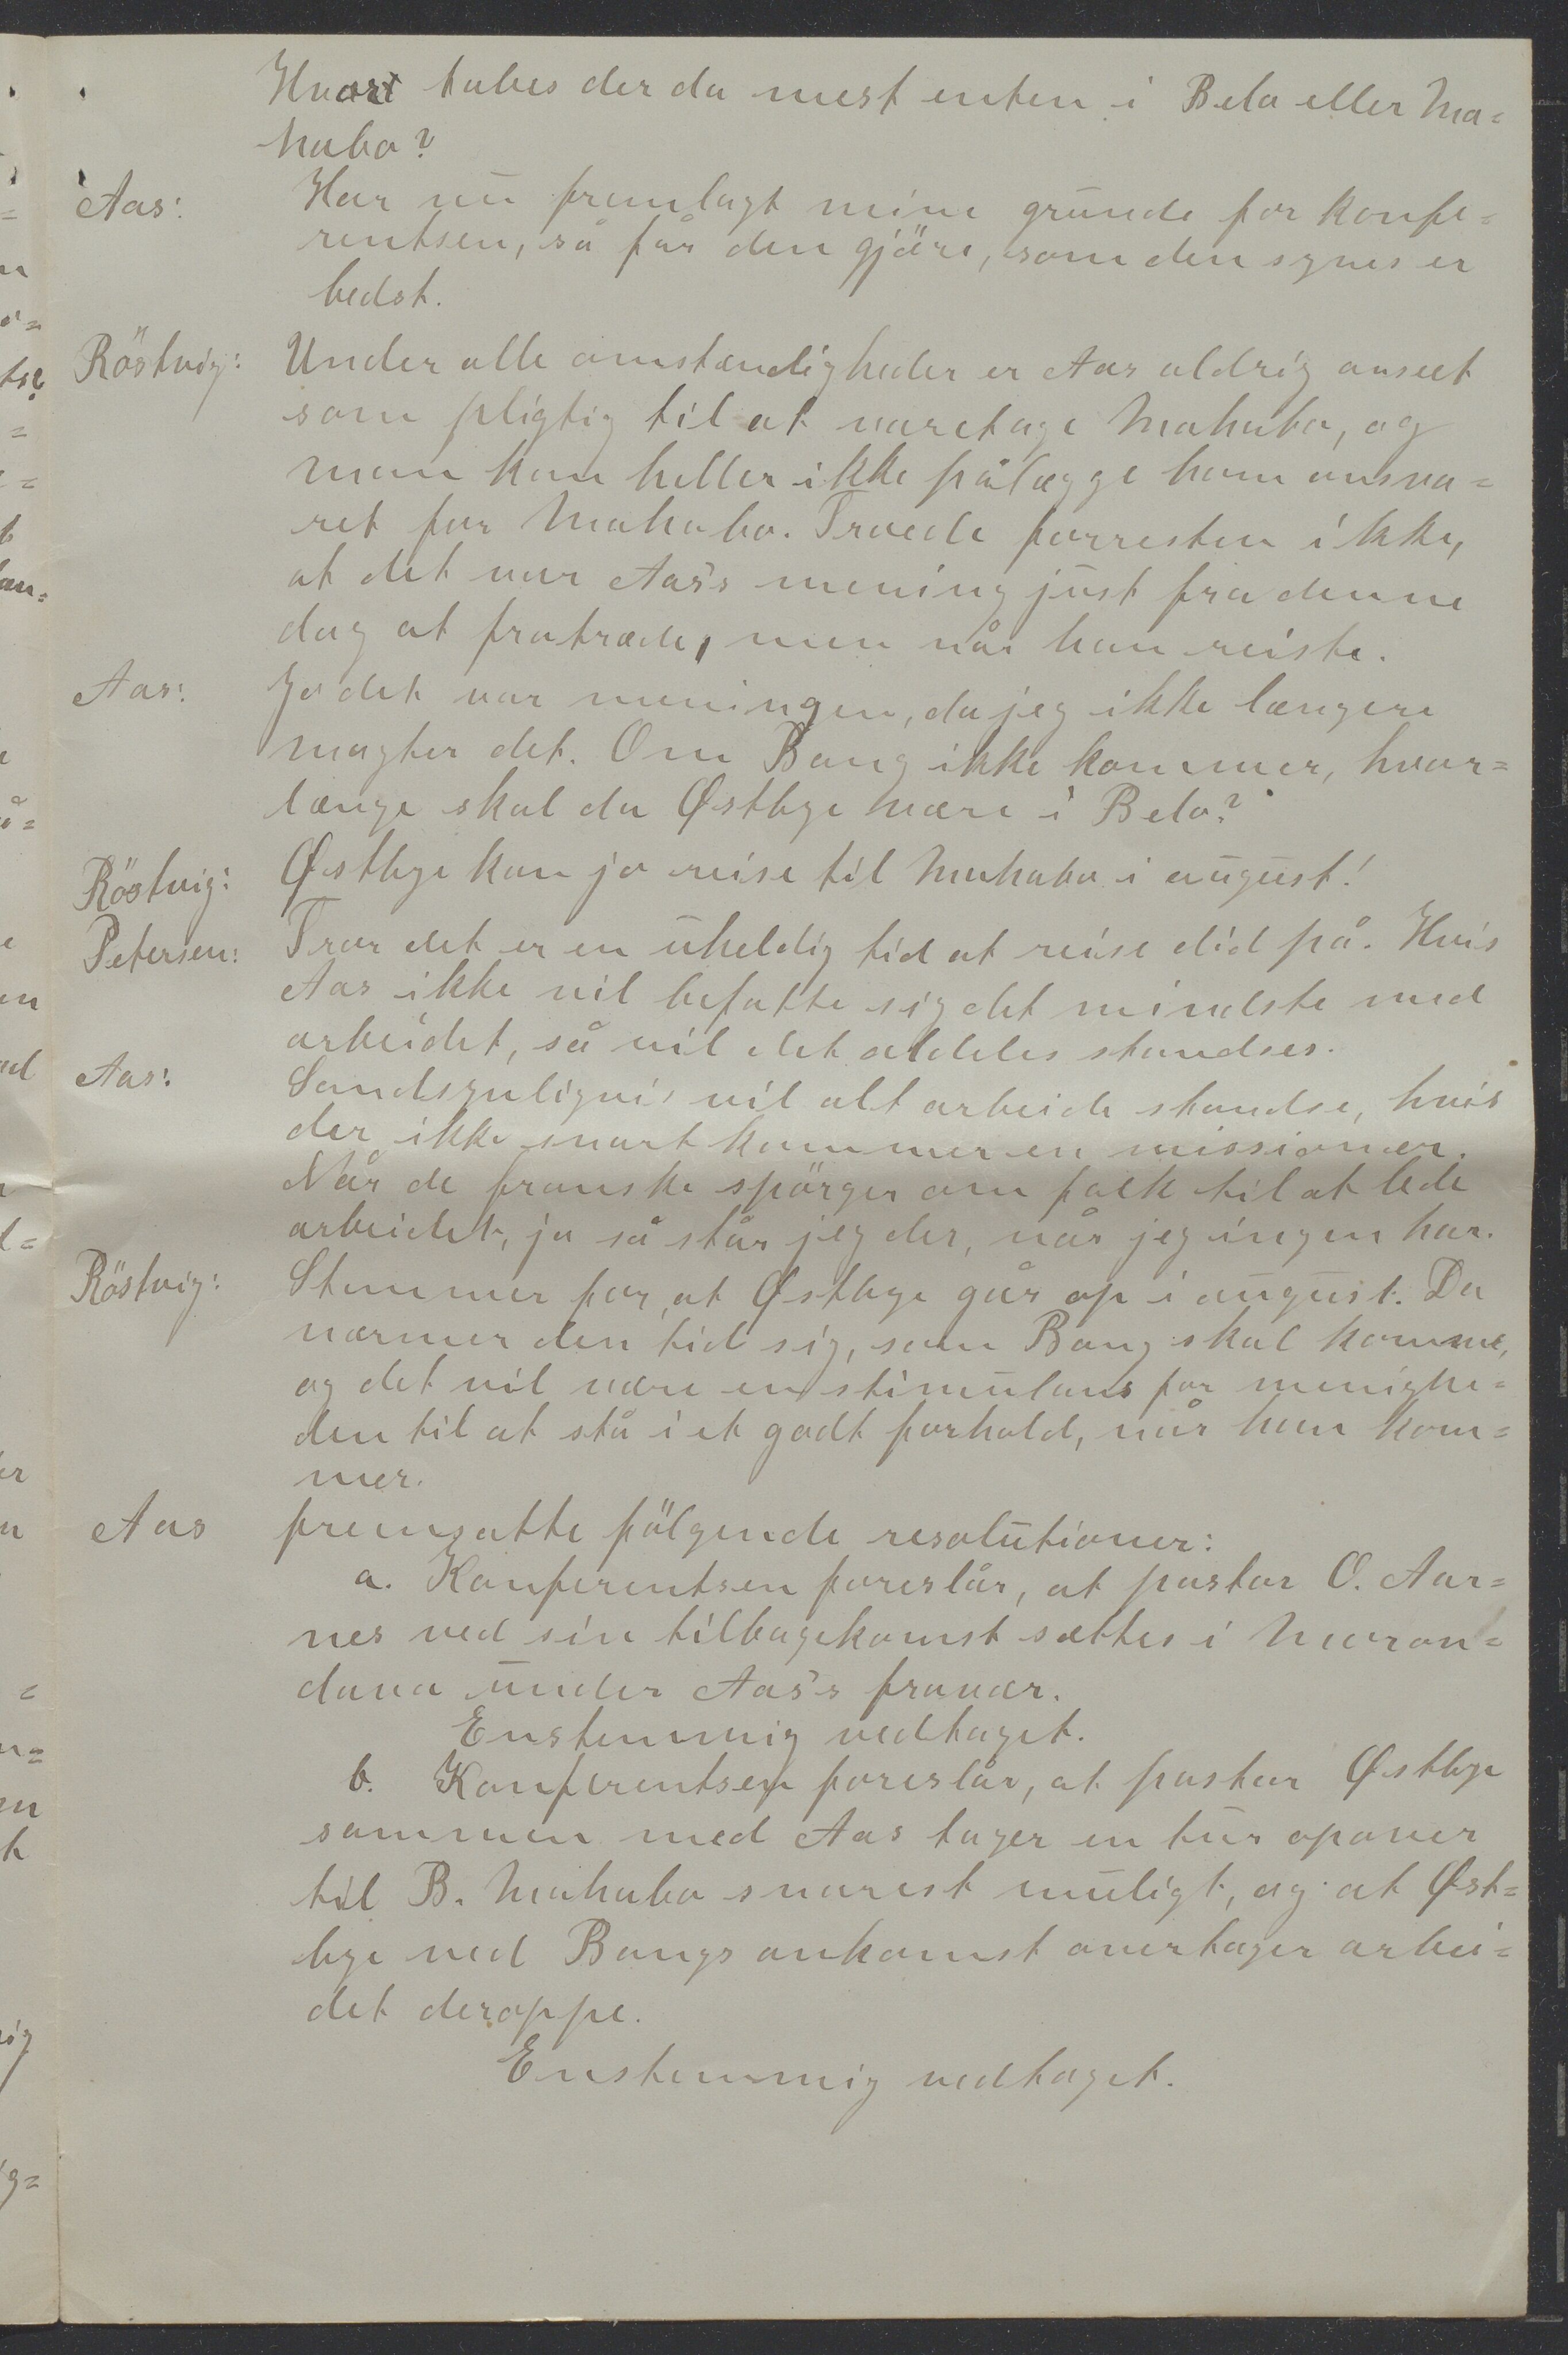 Hvor tabes der da mest enten i Belo eller Ma=
habo?
Aas: Har nu fremlagt mine grunde for konfe=
rentsen, så får den gjöre, som den synes er
bedst.
Röstvig: Under alle omstændigheder er Aas aldrig anseet
som pligtig til at varetage Mahabo, og
man kan heller ikke pålægge ham ansva=
ret for Mahabo. Troede forresten ikke,
at det var Aas's mening just fra denne
dag at fratræde, men når han reiste.
Aas: Jo det var meningen, da jeg ikke længere
magter det. Om Bang ikke kommer, hvor=
længe skal da Østbye være i Belo?
Röstvig: Østbye kan jo reise til Mahabo i august!
Petersen: Tror det er en uheldig tid at reise did på. Hvis
Aas ikke vil befatte sig det mindste med
arbeidet, så vil det aldeles standses.
Aas: Sandsynligvis vil alt arbeide standse, hvis
der ikke snart kommer en missionær.
Når de franske spörger om folk til at lede
arbeidet, ja så står jeg der, når jeg ingen har.
Röstvig: Stemmer for, at Østbye går op i august. Da
nærmer den tid sig, som Bang skal komme,
og det vil være en stimulans for menighe=
den til at stå i et godt forhold, når han kom=
mer.
Aas fremsatte fölgende resolutioner:
a. Konferentsen foreslår, at pastor O. Aar=
nes ved sin tilbagekomst sættes i Moron=
dava under Aas's fravær.
Enstemmig vedtaget.
b. Konferentsen foreslår, at pastor Østbye
sammen med Aas tager en tur opover
til B. Mahabo snarest muligt, og at Øst=
bye ved Bangs ankomst overtager arbei=
det deroppe.
Enstemmig vedtaget.